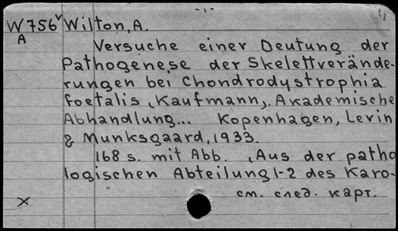 -1-
W 756v Wilton, A.
A
Versuche einer Deutung der
Pathogenese der Skelettverände-
rungen bei Chondrodystrophia
foetalis „Kaufmann„. Akademische
Abhandlung... Kopenhagen, Levin
& Munksgaard, 1933.
168 s. mit Abb. „Aus der patho
logischen Abteilung 1-2 des Karo-
x
см. след. карт.